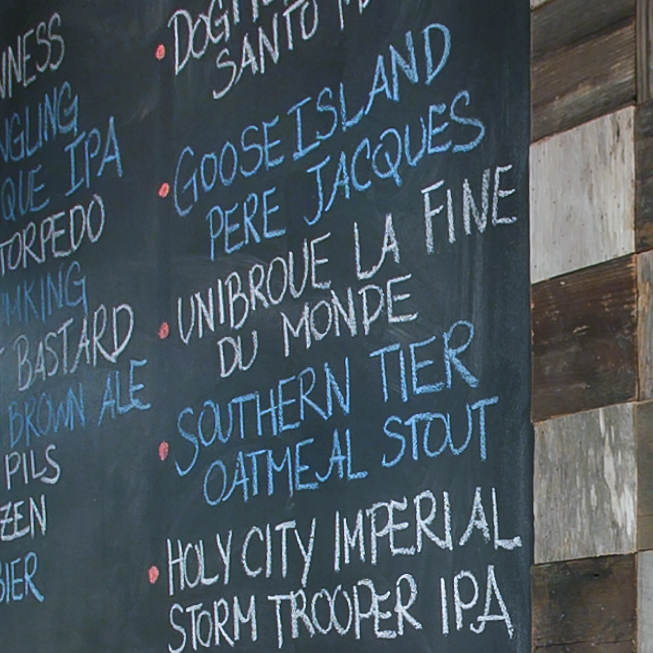 IPA
TORPEDO
BASTARD
BROWN ALE
PILS
SANTO
GOOSE ISLAND
PERE JACQUES
UNIBROUE LA FINE
DU MONDE
SOUTHERN TIER
OATMEAL STOUT
HOLY CITY IMPERIAL
STORM TROOPER IPA